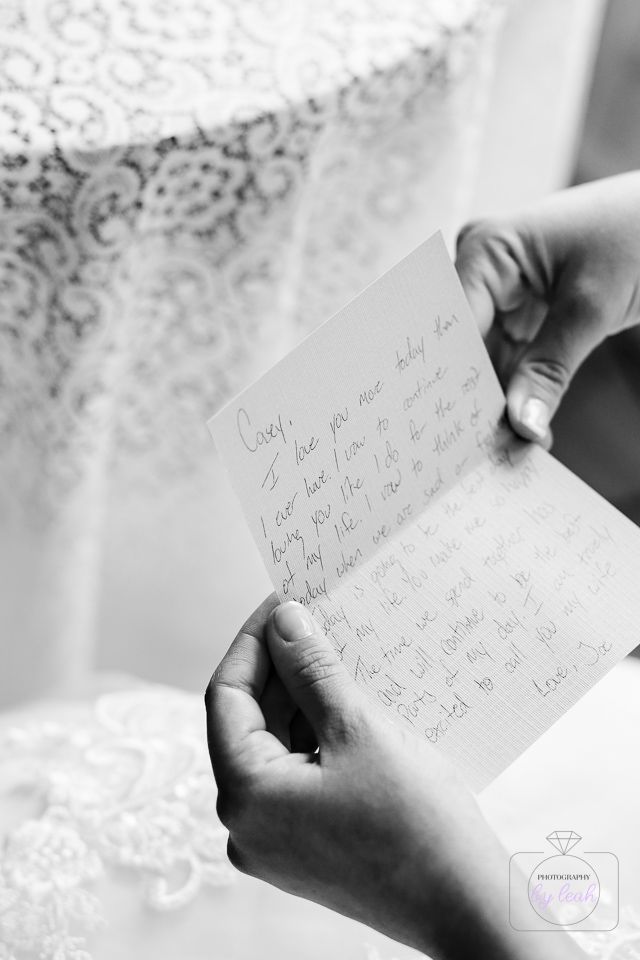 Casey,
I love you more today than
I ever have. I vow to continue
loving you like I do for the rest
of my life. I vow to think of
today when we are sad or
today is going to be the best
of my life. You make me so happy
The time we spend together has
and will continue to be the best
parts of my day. I am truly
excited to call you my wife
Love, Joe
PHOTOGRAPHY
by leah